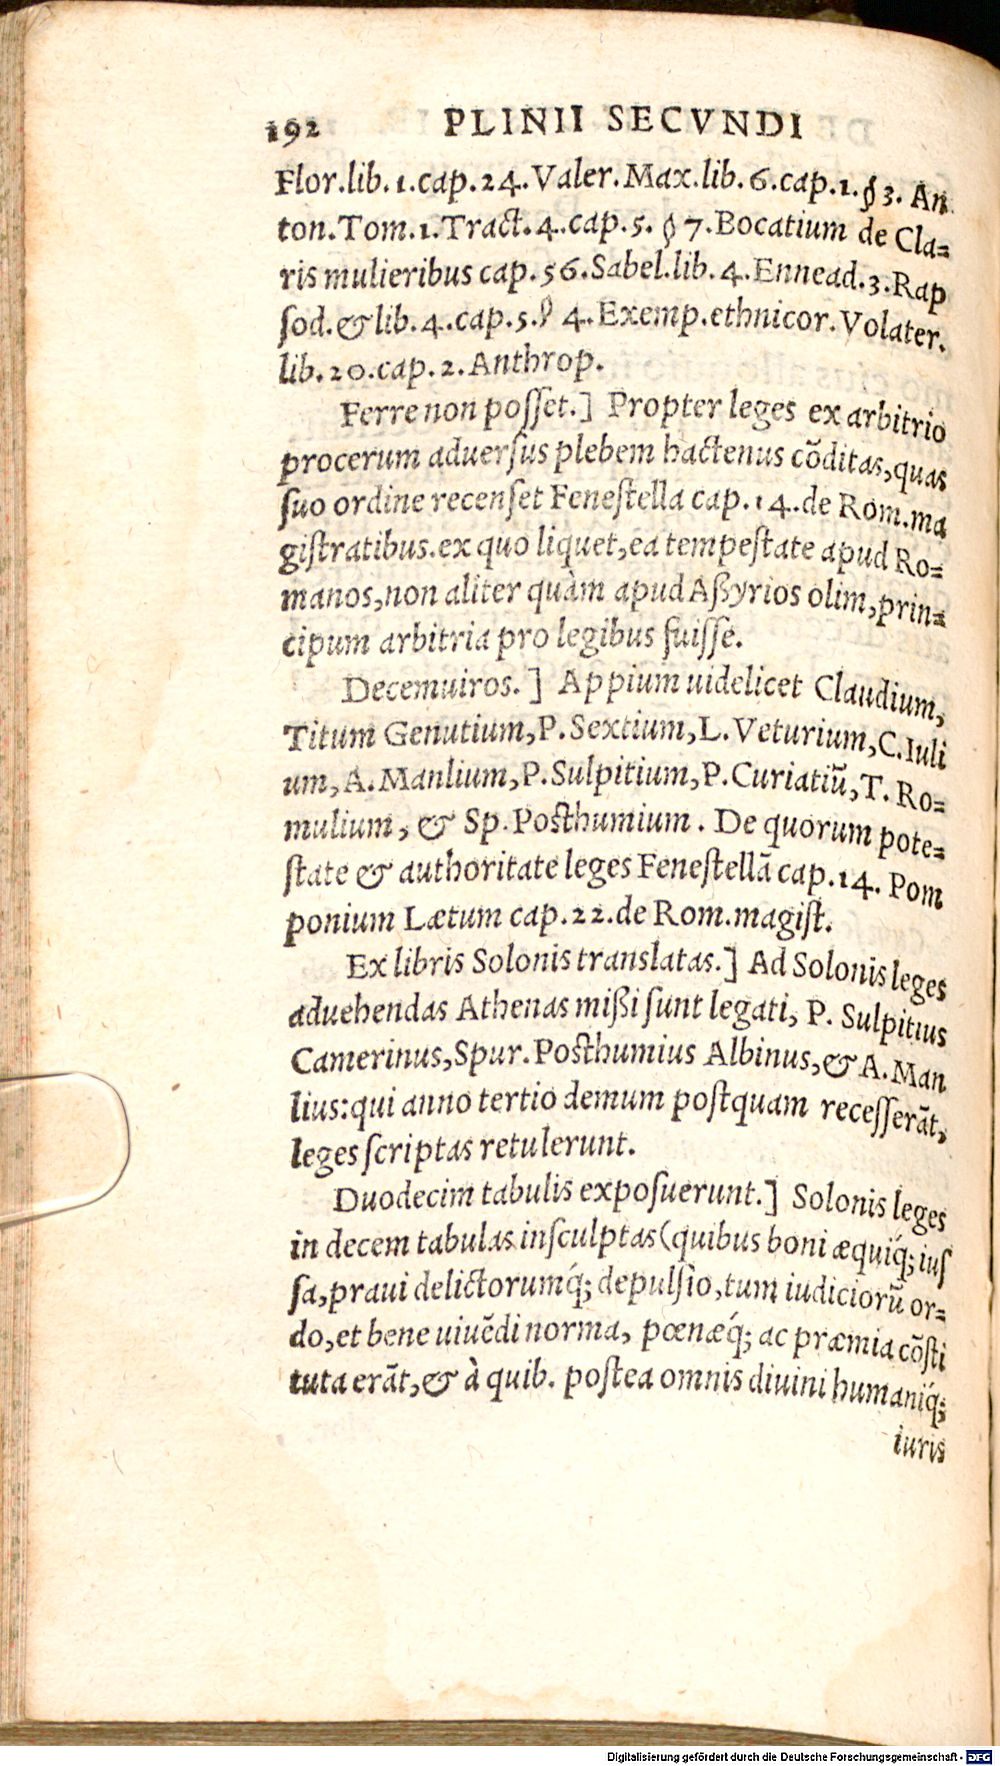 192 PLINII SECVNDI
Flor.lib.1.cap.24.Valer.Max.lib.6.cap.1.§ 3. An
ton.Tom.1.Tract.4.cap.5. § 7.Bocatium de Cla=
ris mulieribus cap.56.Sabel.lib.4.Ennead.3.Rap
ſod.& lib.4.cap.5.§ 4.Exemp.ethnicor.Volater.
lib.20.cap.2.Anthrop.
Ferre non poſſet.] Propter leges ex arbitrio
procerum aduerſus plebem hactenus cõditas,quas
ſuo ordine recenſet Feneſtella cap.14.de Rom.ma
giſtratibus.ex quo liquet,ea tempeſtate apud Ro=
manos,non aliter quàm apud Aßyrios olim,prin=
cipum arbitria pro legibus fuiſſe.
Decemuiros.] Appium uidelicet Claudium,
Titum Genutium,P.Sextium,L.Veturium,C.Iuli
um,A.Manlium,P.Sulpitium,P.Curiatiũ,T.Ro=
mulium, & Sp.Poſthumium. De quorum pote=
ſtate & authoritate leges Feneſtellã cap.14. Pom
ponium Lætum cap.22.de Rom.magiſt.
Ex libris Solonis translatas.] Ad Solonis leges
aduehendas Athenas mißi ſunt legati, P. Sulpitius
Camerinus,Spur.Poſthumius Albinus,& A.Man
lius:qui anno tertio demum poſtquam receſſerãt,
leges ſcriptas retulerunt.
Duodecim tabulis expoſuerunt.] Solonis leges
in decem tabulas inſculptas(quibus boni æquiq́; iuſ
ſa,praui delictorumq́; depulſio,tum iudiciorũ or=
do,et bene uiuẽdi norma, pœnæq́; ac præmia cõſti
tuta erãt,& à quib. poſtea omnis diuini humaniq́;
iuris
Digitalisierung gefördert durch die Deutsche Forschungsgemeinschaft - DFG